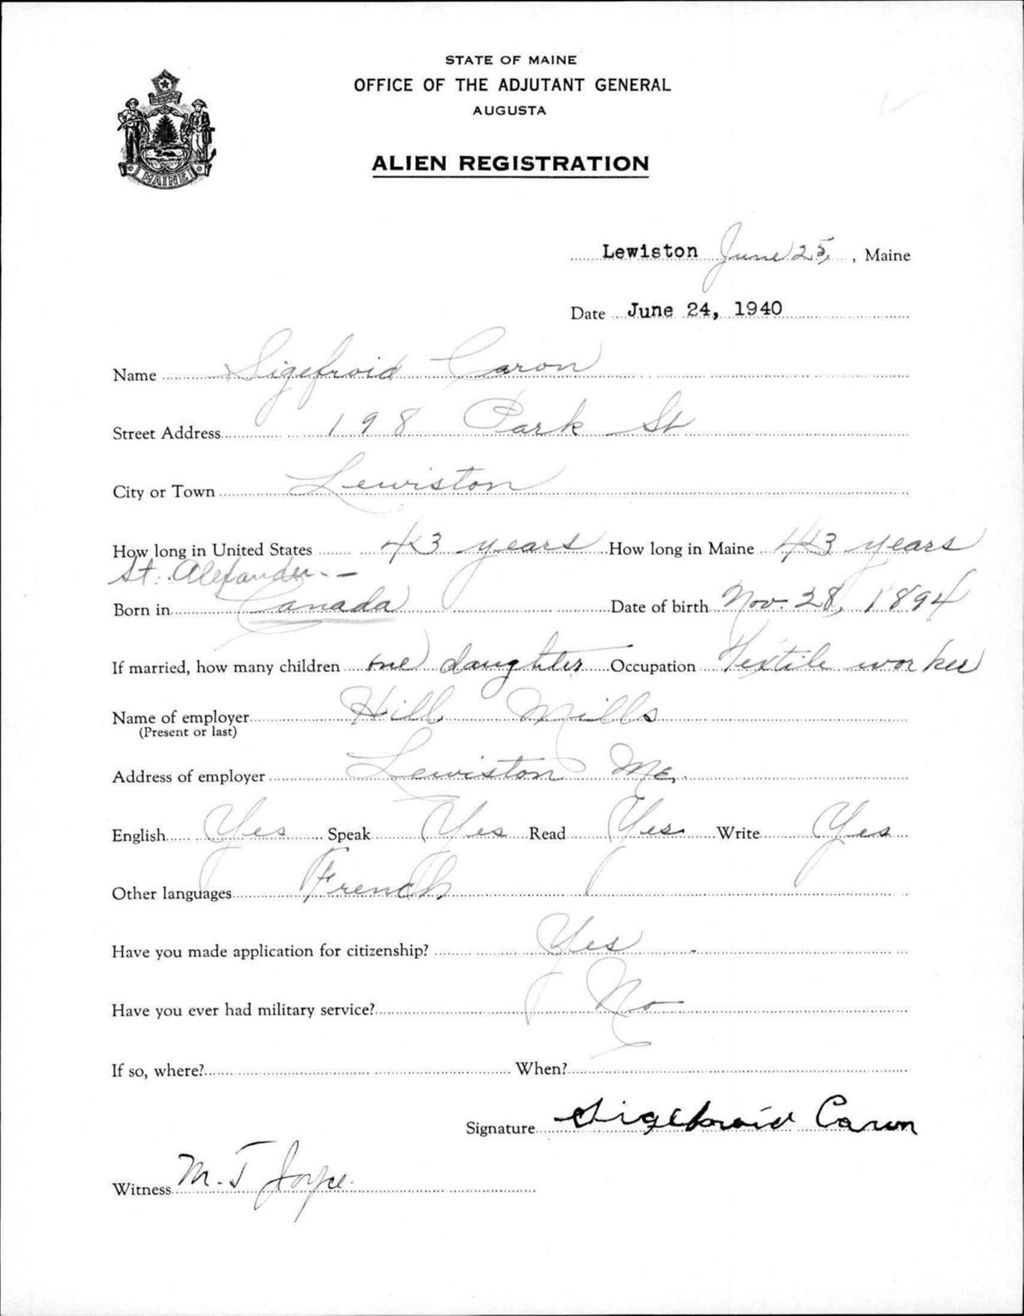 STATE OF MAINE
OFFICE OF THE ADJUTANT GENERAL
AUGUSTA
ALIEN REGISTRATION
MAINE
Lewiston June 25, , Maine
Date June 24, 1940
Name Sigefroid Caron
Street Address 198 Park St
City or Town Lewiston
How long in United States 43 years How long in Maine 43 years
St. Alexander. —
Born in Canada Date of birth Nov. 28, 1894
If married, how many children one daughter Occupation Textile worker
Name of employer Hill Mills
(Present or last)
Address of employer Lewiston Me.
English Yes Speak Yes Read Yes Write Yes
Other languages French
Have you made application for citizenship? Yes
Have you ever had military service? No
If so, where? When?
Signature Sigefroid Caron
Witness M. J Joyce.